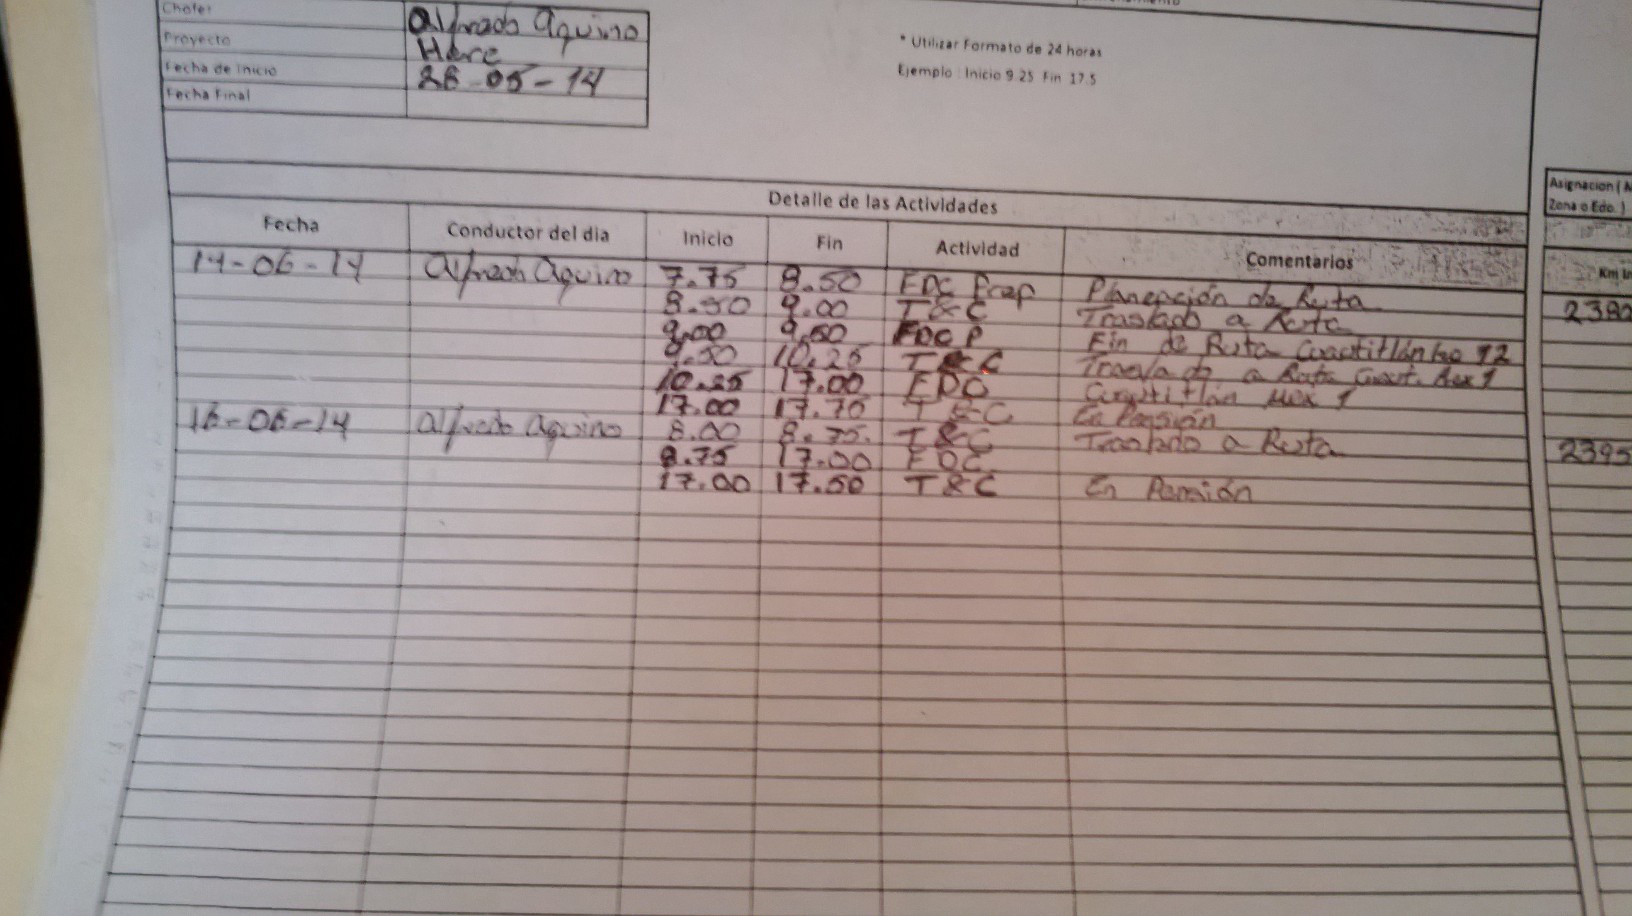 Chofer Alfredo Aquino
Proyecto Here
Fecha de Inicio 28-05-14
Fecha Final
* Utilizar Formato de 24 horas
Ejemplo : Inicio 9.25 Fin 17.5
Detalle de las Actividades
Asignacion (
Zona o Edo. )
Fecha Conductor del dia Inicio Fin Actividad Comentarios
Km
14-06-14 Alfredo Aquino 7.75 8.50 FDC Prep Planeación de Ruta
8.50 9.00 T&C Traslado a Ruta 2380
9.00 9.50 FDC P Fin de Ruta Cuactitlán 12
9.50 10.25 T&C Traslado a Ruta Cuact. Mex 1
10.25 17.00 FDC Cuactitlán Mex 1
17.00 17.75 T&C En Pensión
16-06-14 Alfredo Aquino 8.00 8.75. T&C Traslado a Ruta 2395
8.75 17.00 FDC
17.00 17.50 T&C En Pensión